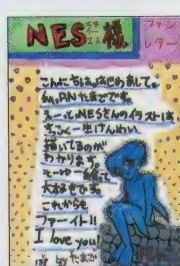 NES様
ファン
レター
こんにちは。はじめまして。
私、P.N.たまごです。
えーっとNESさんのイラストは
すっごく一生けんめい
描いてるのが
わかります。
そーゆー絵って
大好きです。
これからも
ファイト!!
I love you!
by たまご